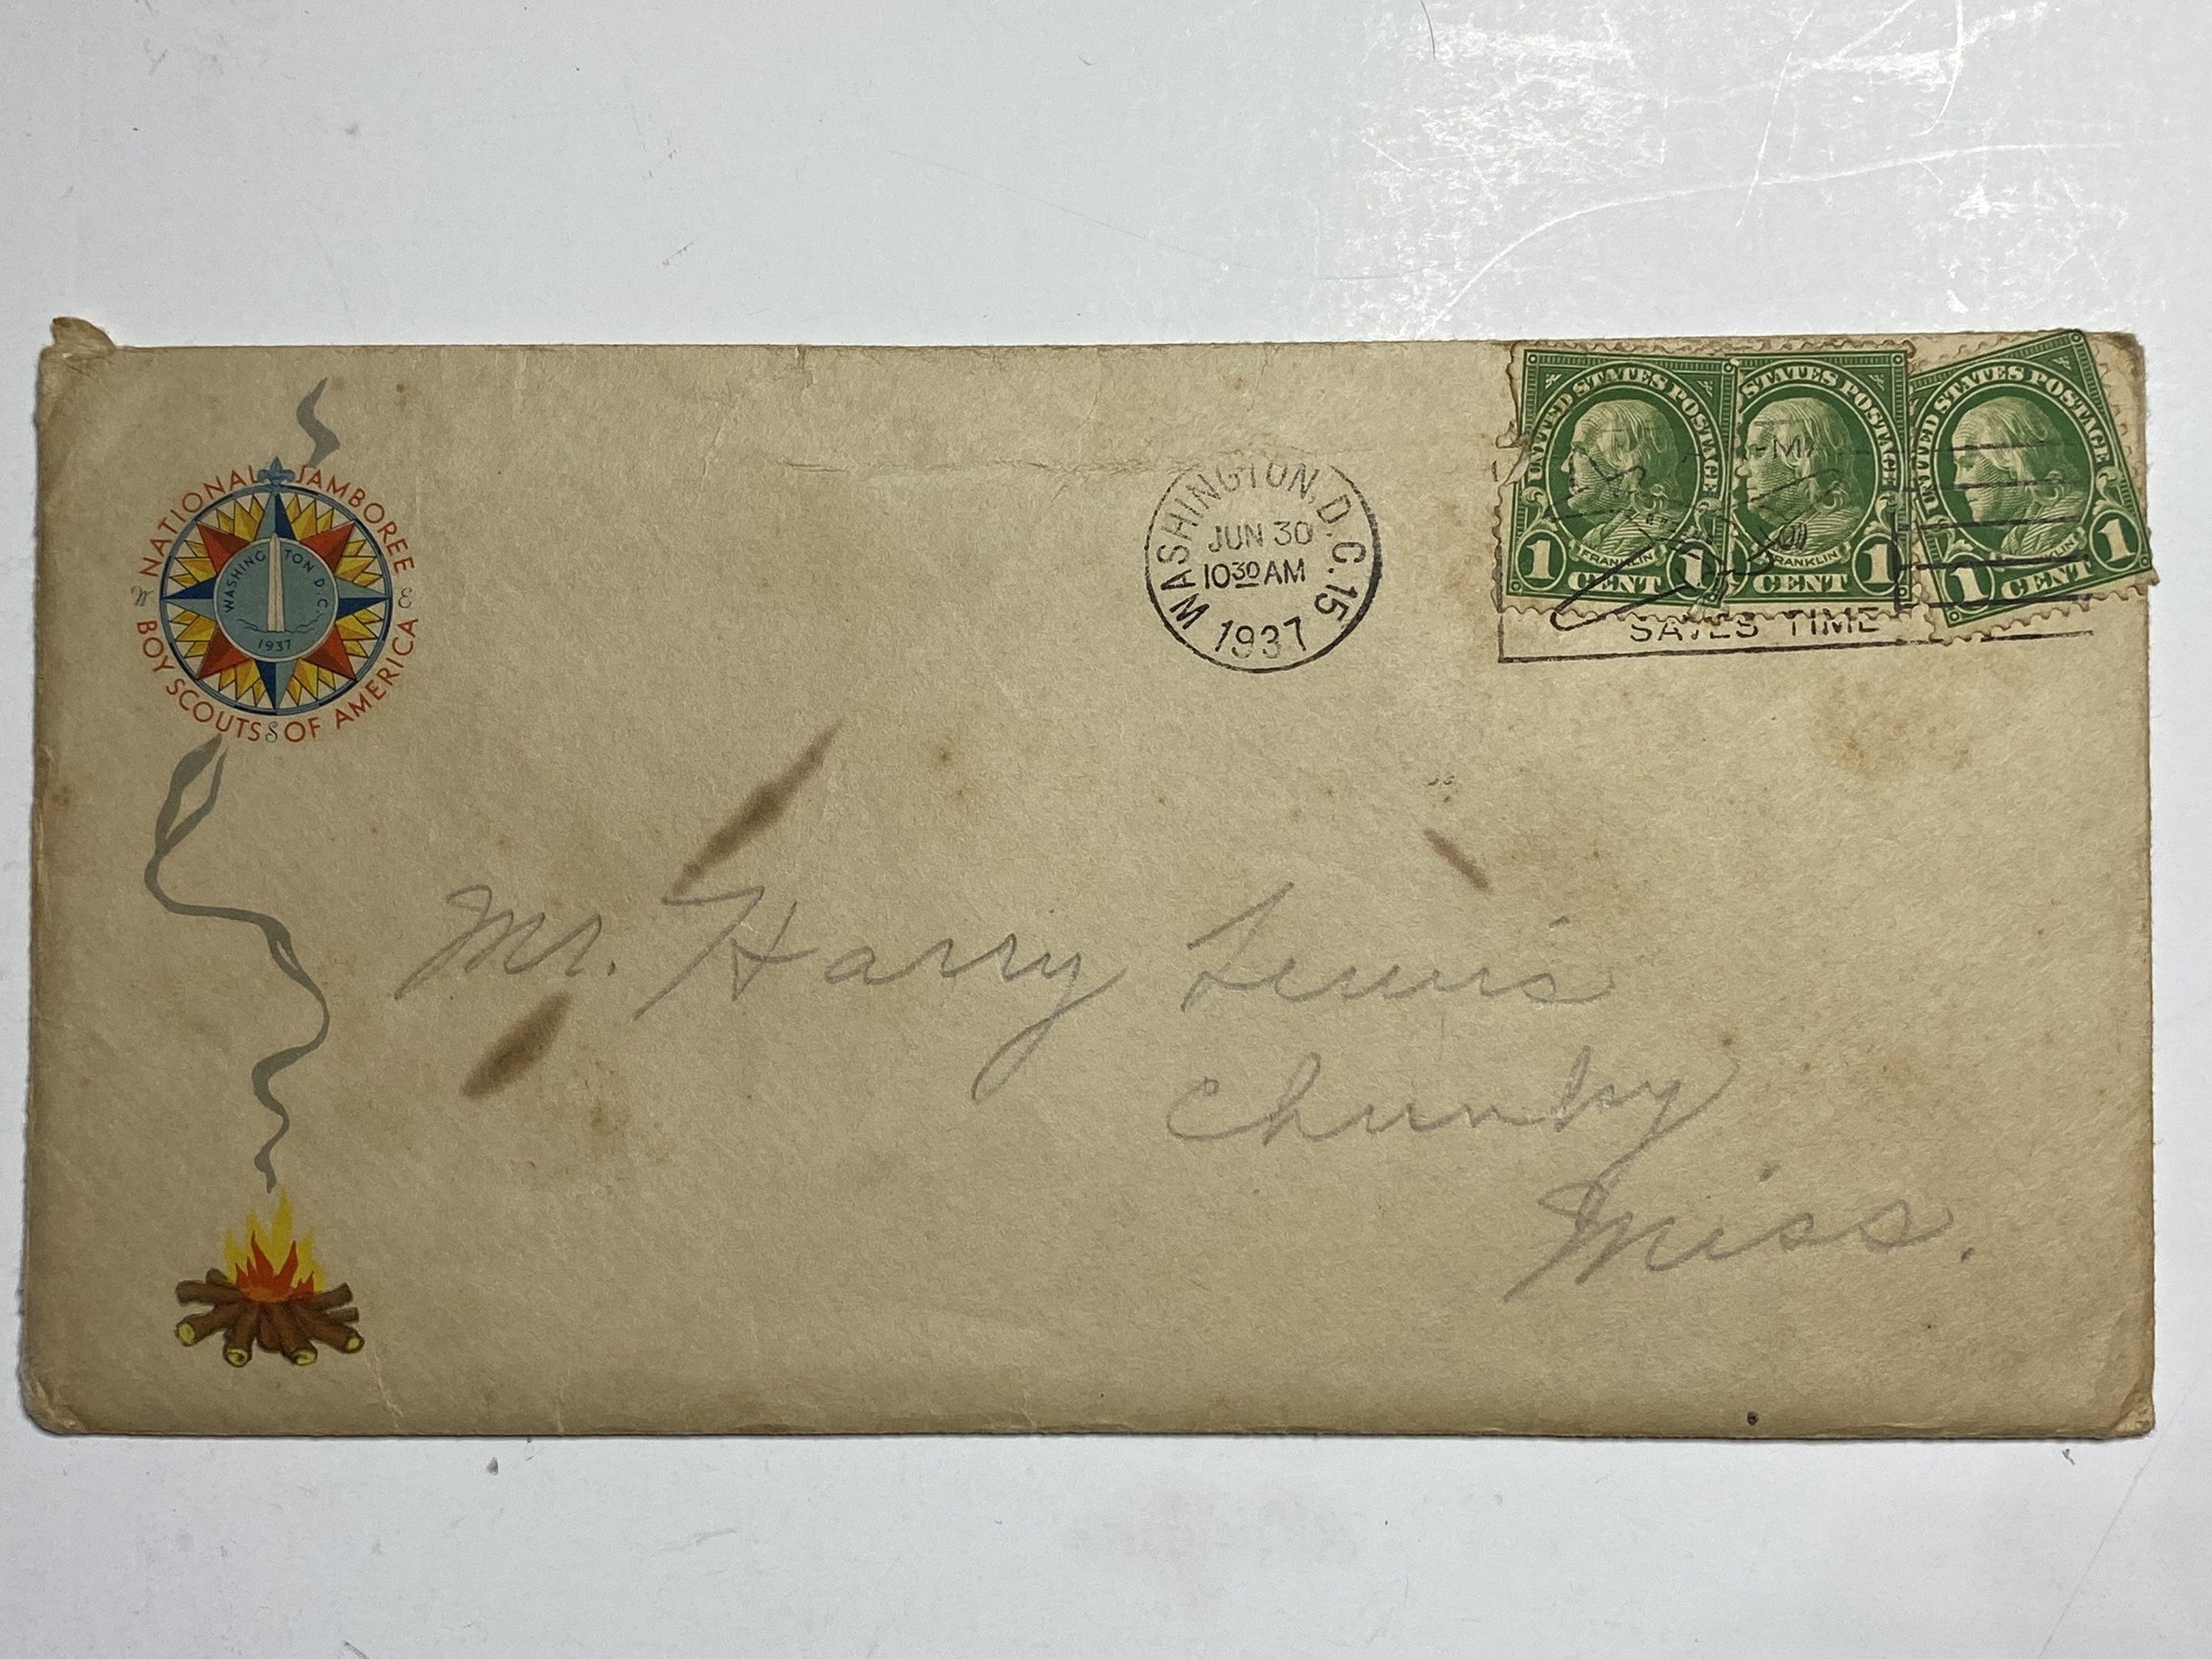 NATIONAL JAMBOREE
W E
WASHINGTON D.C.
1937
BOY SCOUTS S OF AMERICA
WASHINGTON, D.C. 15
JUN 30
10 30 AM
1937
UNITED STATES POSTAGE
FRANKLIN
1 CENT 1
STATES POSTAGE
FRANKLIN
CENT 1
UNITED STATES POSTAGE
FRANKLIN
1 CENT 1
SAVES TIME
Mr. Harry Lewis
Chunky
Miss.